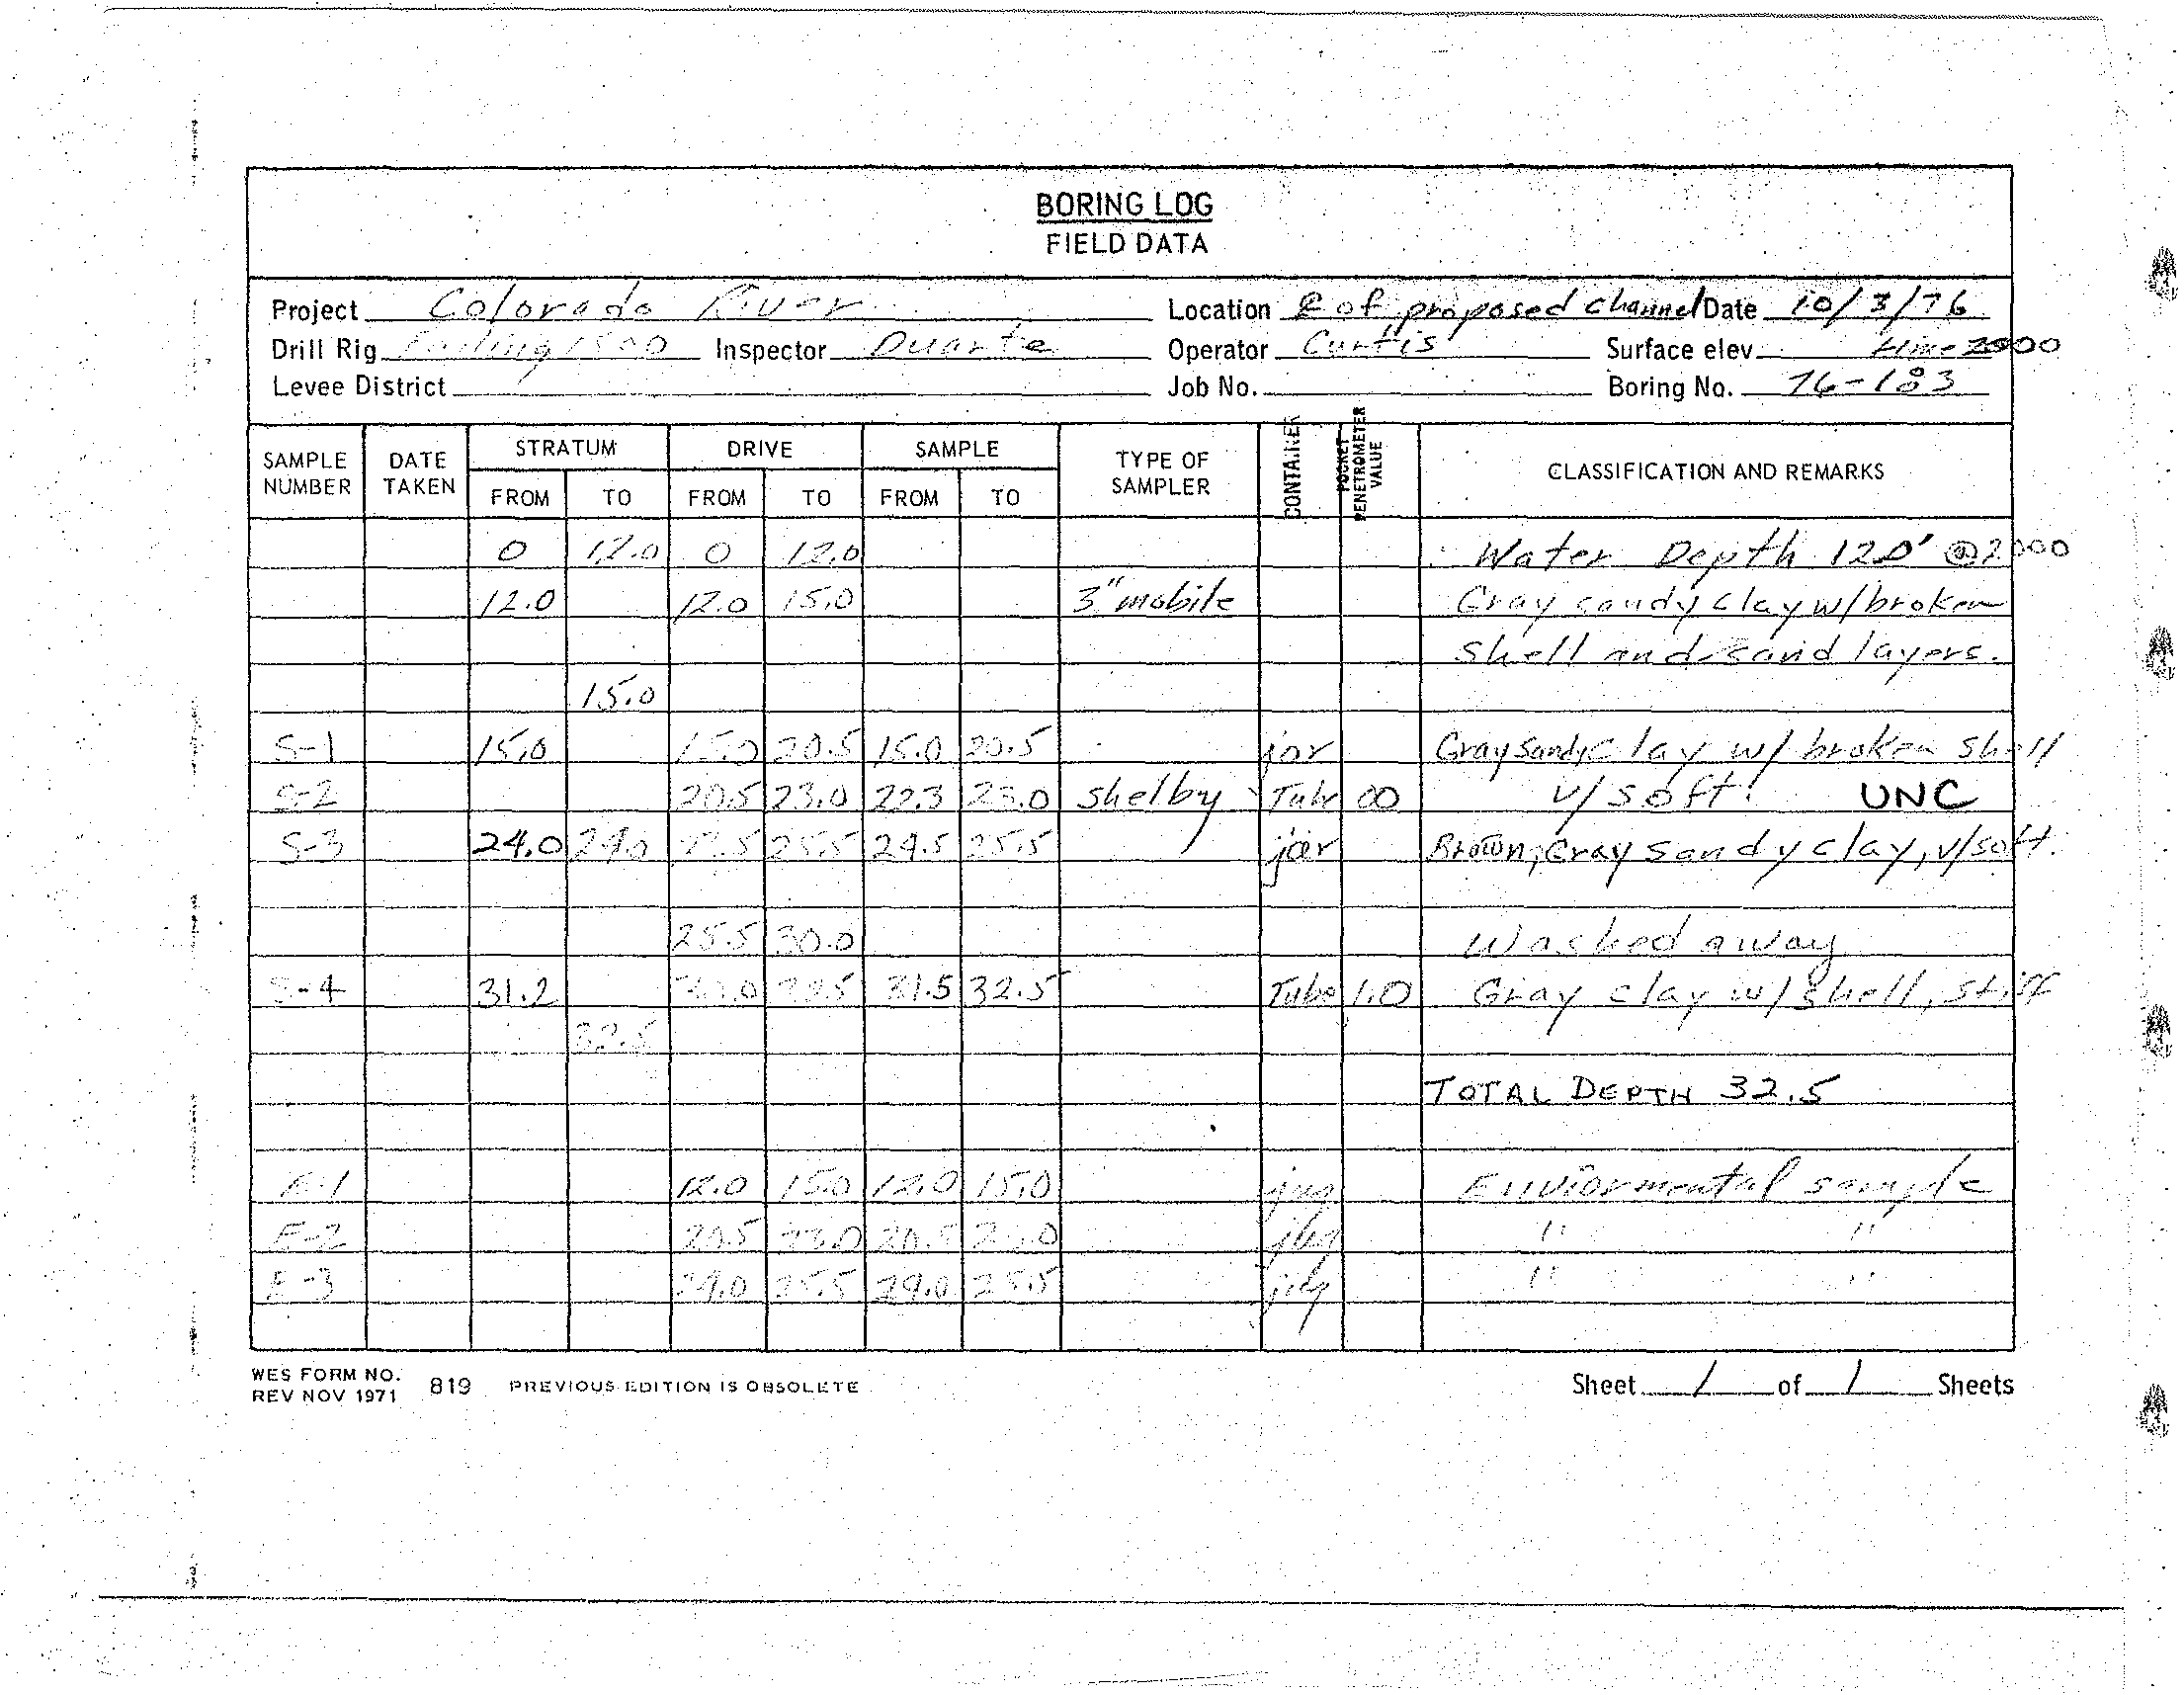 BORING LOG
FIELD DATA
Project Colorado River Location ℄ of proposed channel Date 10/3/76
Drill Rig Failing 1500 Inspector Duarte Operator Curtis Surface elev. time 2000
Levee District Job No. Boring No. 76-183
SAMPLE NUMBER DATE TAKEN STRATUM FROM TO DRIVE FROM TO SAMPLE FROM TO TYPE OF SAMPLER CONTAINER POCKET PENETROMETER VALUE CLASSIFICATION AND REMARKS
0 12.0 0 12.0 Water Depth 12.0' @2000
12.0 12.0 15.0 3" mobile Gray sandy clay w/broken
shell and sand layers.
15.0
S-1 15.0 15.0 20.5 15.0 20.5 jar Gray Sandy Clay w/ broken shell
S-2 20.5 23.0 22.3 23.0 shelby Tube 00 v/soft. UNC
S-3 24.0 24.0 25.5 24.5 25.5 jar Brown, Gray sandy clay, v/soft.
25.5 30.0 Washed away
S-4 31.2 31.5 32.5 Tube 1.0 Gray clay w/ shell, stiff
32.5
TOTAL DEPTH 32.5
E-1 12.0 15.0 12.0 15.0 jug Enviormental sample
E-2 20.5 23.0 20.5 23.0 jug " "
E-3 24.0 25.5 24.0 25.5 jug " "
WES FORM NO. 819 PREVIOUS EDITION IS OBSOLETE
REV NOV 1971
Sheet 1 of 1 Sheets